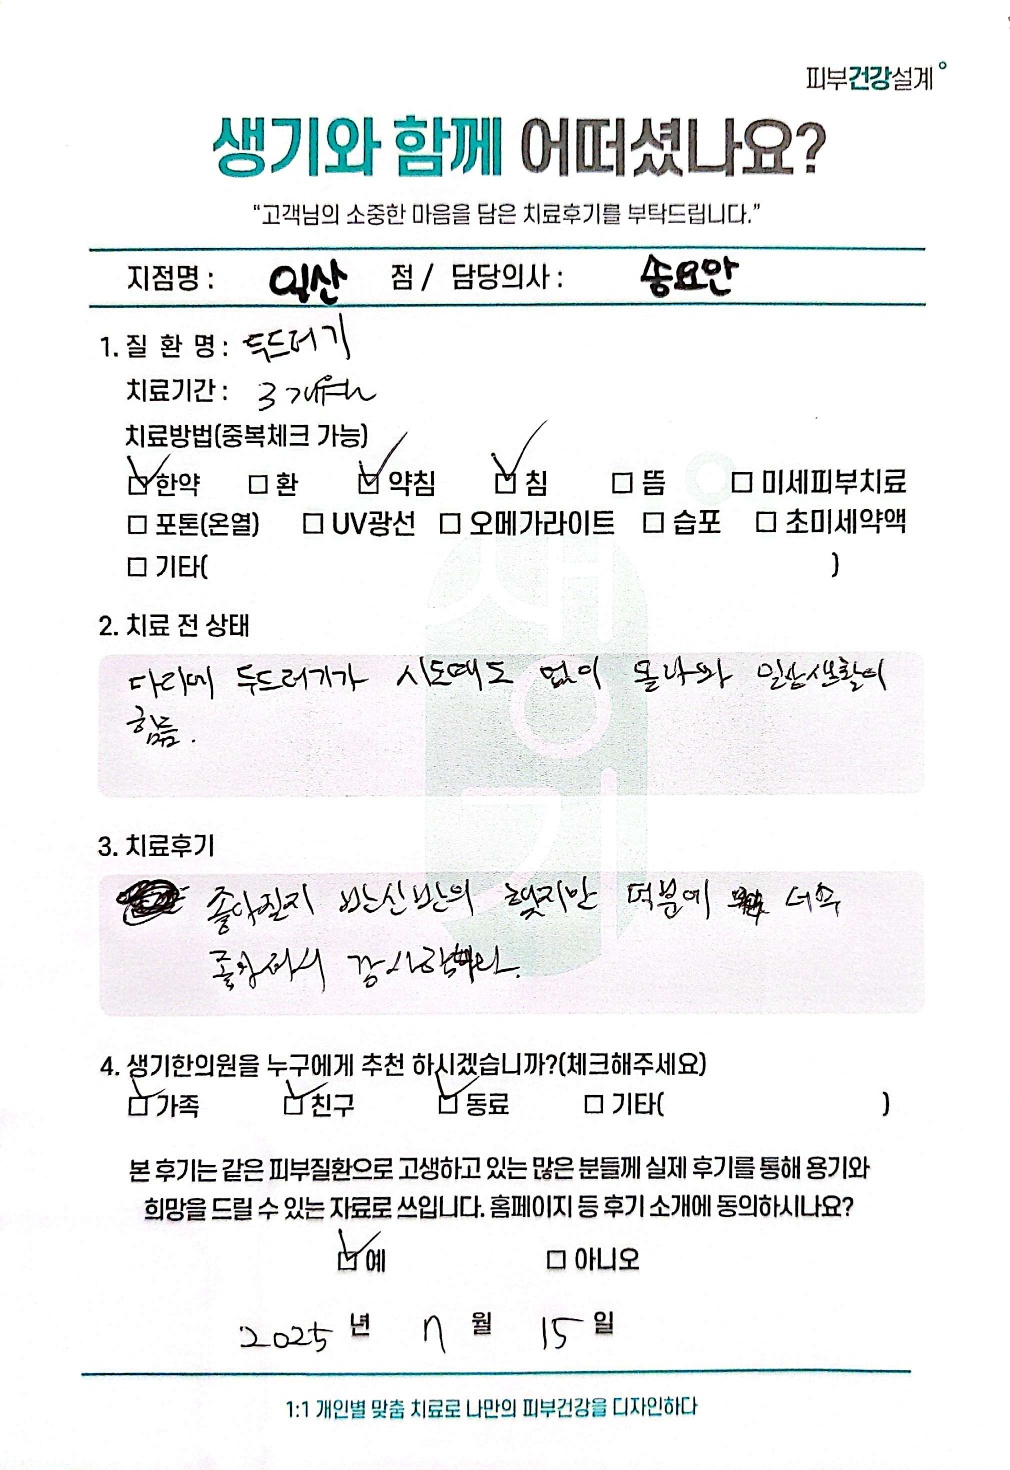 피부건강설계
생기와 함께 어떠셨나요?
"고객님의 소중한 마음을 담은 치료후기를 부탁드립니다."
지점명 : 일산 점 / 담당의사 : 송요안
1. 질 환 명 : 두드러기
치료기간 : 3개월
치료방법(중복체크 가능)
☑ 한약 ☐ 환 ☑ 약침 ☑ 침 ☐ 뜸 ☐ 미세피부치료
☐ 포톤(온열) ☐ UV광선 ☐ 오메가라이트 ☐ 습포 ☐ 초미세약액
☐ 기타( )
2. 치료 전 상태
다리에 두드러기가 시도때도 없이 올라와 일상생활이
힘듦.
3. 치료후기
좋아질지 반신반의 했지만 덕분에 너무
좋아져서 감사합니다.
4. 생기한의원을 누구에게 추천 하시겠습니까?(체크해주세요)
☑ 가족 ☑ 친구 ☑ 동료 ☐ 기타( )
본 후기는 같은 피부질환으로 고생하고 있는 많은 분들께 실제 후기를 통해 용기와
희망을 드릴 수 있는 자료로 쓰입니다. 홈페이지 등 후기 소개에 동의하시나요?
☑ 예 ☐ 아니오
2025 년 7 월 15 일
1:1 개인별 맞춤 치료로 나만의 피부건강을 디자인하다
생기